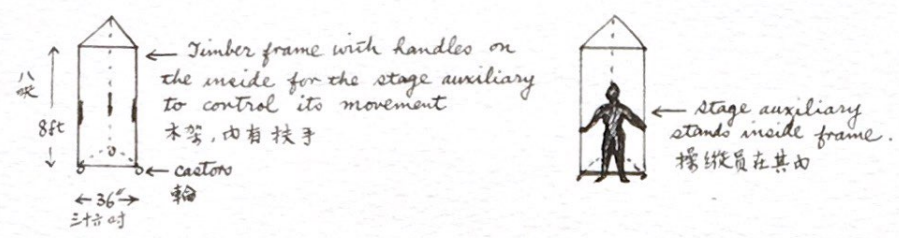 Timber frame with handles on
the inside for the stage auxiliary
to control its movement
木架，内有扶手
八呎
8ft
castors
輪
36"
三十六吋
stage auxiliary
stands inside frame.
操縱員在其内